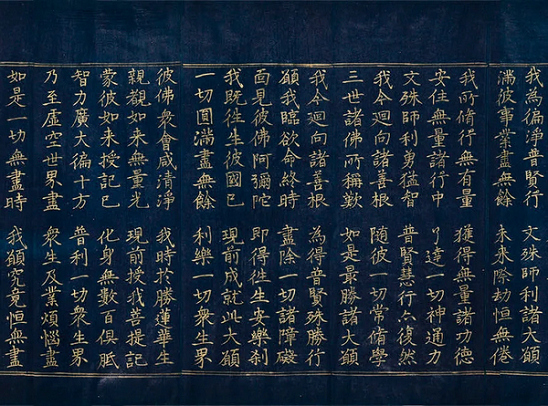 我為徧淨普賢行 文殊師利諸大願
滿彼事業盡無餘 未來際劫恒無倦
我所脩行無有量 獲得無量諸功德
安住無量諸行中 了達一切神通力
文殊師利勇猛智 普賢慧行亦復然
我今迴向諸善根 隨彼一切常脩學
三世諸佛所稱歎 如是最勝諸大願
我今迴向諸善根 為得普賢殊勝行
願我臨欲命終時 盡除一切諸障礙
面見彼佛阿彌陀 即得往生安樂刹
我既往生彼國已 現前成就此大願
一切圓滿盡無餘 利樂一切衆生界
彼佛衆會咸清淨 我時於勝蓮華生
親覩如来無量光 現前授我菩提記
蒙彼如来授記已 化身無數百俱胝
智力廣大徧十方 普利一切衆生界
乃至虛空世界盡 衆生及業煩惱盡
如是一切無盡時 我願究竟恒無盡